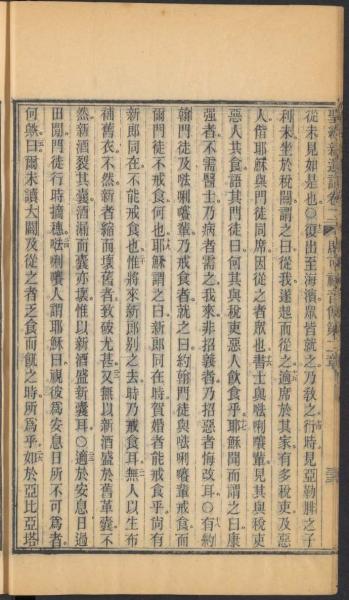 聖經新遺詔卷二 馬可福音傳第二章
從未見如是也○復出至海濱眾皆就之乃敎之行時見亞勒腓之子
利未坐於稅關謂之曰從我遂起而從之適席於其家有多稅吏及惡
人偕耶穌與門徒同席因從之者眾也書士與𠵽唎㘔輩見其與稅吏
惡人共食語其門徒曰何其與稅吏惡人飲食乎耶穌聞而謂之曰康
强者不需醫士乃病者需之我來非招義者乃招惡者悔改耳○有約
翰門徒及𠵽唎㘔輩乃戒食者就之曰約翰門徒與𠵽唎㘔輩戒食而
爾門徒不戒食何也耶穌謂之曰新郎同在時賀婚者能戒食乎尚有
新郎同在不能戒食也惟將來新郎別之去時乃戒食耳無人以生布
補舊衣不然新者縮而壞舊者致破尤甚又無以新酒盛於舊革囊不
然新酒裂其囊酒漏而囊亦壞惟以新酒盛新囊耳○適於安息日過
田間門徒行時摘穗𠵽唎㘔人謂耶穌曰視彼為安息日所不可為者
何歟曰爾未讀大闢及從之者乏食而飢之時所為乎如於亞比亞塔